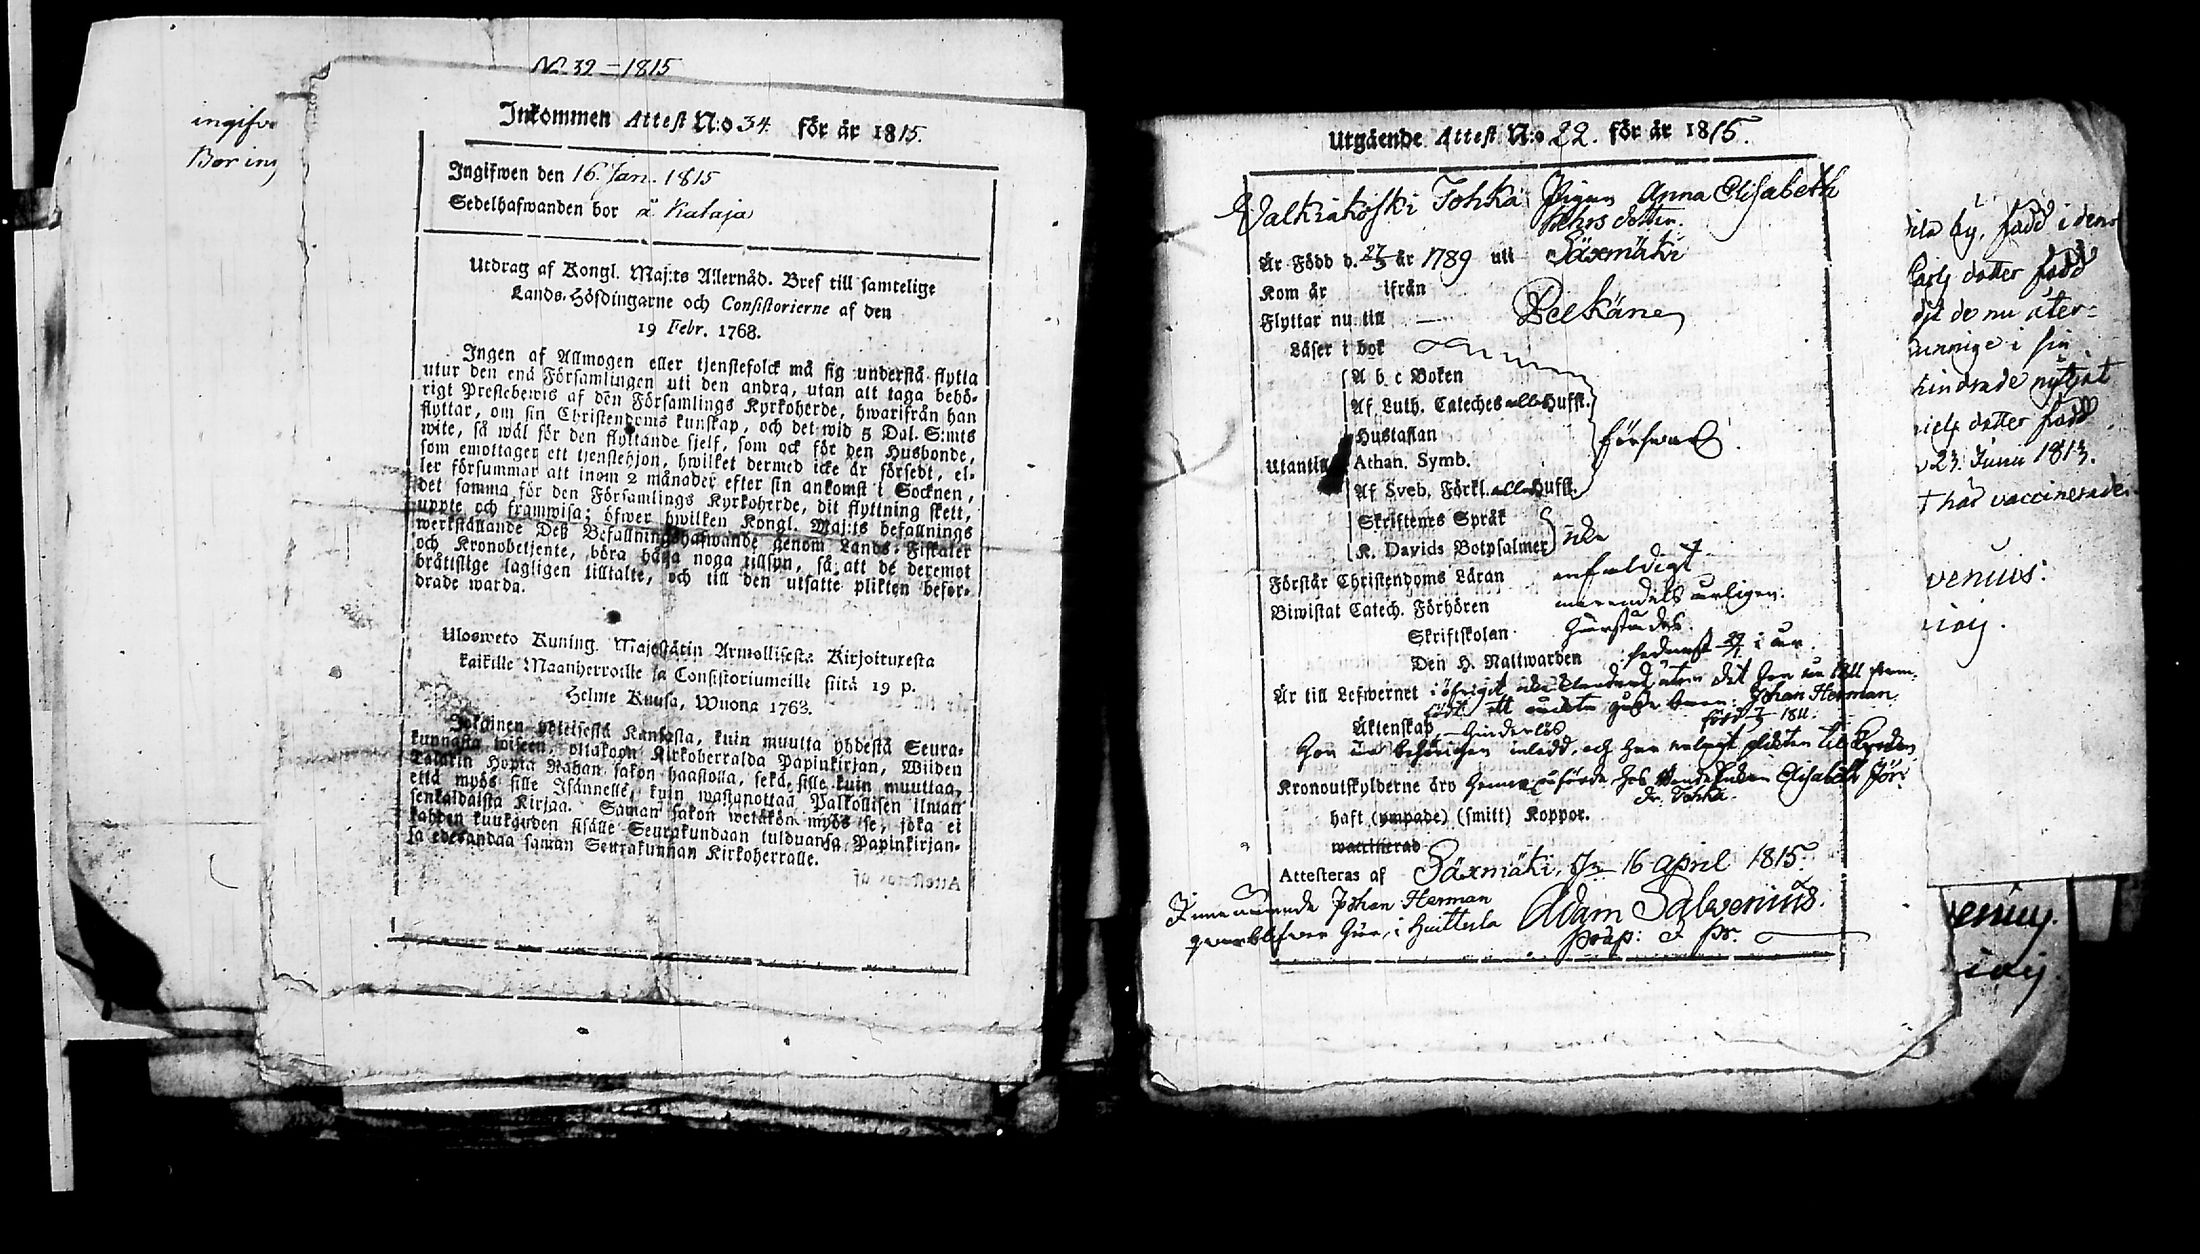 No 32 – 1815
ingifv
Bor inj
Inkommen Attest N:o 34. för år 1815.
Ingifwen den 16. Jan. 1815
Sedelhafwanden bor å Kataja
Utdrag af Kongl. Maj:ts Allernåd. Bref till samtelige
Lands-Höfdingarne och Consistorierne af den
19 Febr. 1768.
Ingen af Allmogen eller tjenstefolck må sig understå flytta
utur den ena Församlingen uti den andra, utan att taga behö-
rigt Prestebewis af den Församlings Kyrkoherde, hwarifrån han
flyttar, om sin Christendoms kunskap, och det wid 5 Dal. S:mts
wite, så wäl för den flyttande sjelf, som ock för den Husbonde,
som emottager ett tjenstehjon, hwilket dermed icke är försedt, el-
ler försummar att inom 2 månader efter sin ankomst i Socknen,
det samma för den Församlings Kyrkoherde, dit flyttning skett,
uppte och framwisa; öfwer hwilken Kongl. Maj:ts befallnings
werkställande Deß Befallningshafwande genom Lands-Fiskaler
och Kronobetjente, böra hafwa noga tillsyn, så att de deremot
bråttslige lagligen tilltalte, och till den utsatte plikten befor-
drade warda.
Ulosweto Kuning. Majestätin Armollisesta Kirjoituxesta
kaikille Maanherroille ja Consistoriumeille siitä 19 p.
Helme Kuusa, Wuona 1768.
Jokainen yhteisestä Kansasta, kuin muutta yhdestä Seura-
kunnasta toiseen, ottakoon Kirkoherralda Papinkirjan, Wiiden
Talarin Hopia Rahan sakon haastolla, sekä sille kuin muuttaa,
että myös sille Isännelle, kuin wastanottaa Palkollisen ilman
senkaldaista Kirjaa. Saman sakon wetäkön myös se, joka ei
kahden kuukauden sisälle Seurakundaan tulduansa Papinkirjan-
sa edesandaa saman Seurakunnan Kirkoherralle.
Utgående Attest N:o 22. för år 1815.
Walkiakoski Tohka Pigan Anna Elisabeth
Pehrs dotter.
Är Född d. 27/3 år 1789 uti Säxmäki
Kom år ifrån
Flyttar nu till — Pelkäne
Läser i bok
A b c Boken
Af Luth. Cateches alla Hufst.
Hustaflan
försvarl.
Utantill Athan. Symb.
Af Sveb. Förkl. alla Hufst.
Skriftenes Språk
K. Davids Botpsalmer
Förstår Christendoms Läran enfaldigt
Biwistat Catech. Förhören merendels årligen.
Skriftskolan
Den H. Nattwarden sednast i år.
Är till Lefwernet i öfrigt
Johan Herman
född 1811.
Äktenskap – hinderlös
Kronoutskylderne äro Elisabeth
Tohka.
haft (ympade) (smitt) Koppor.
waccinerad
Attesteras af Säxmäki, d. 16 april 1815.
Johan Herman Adam Salvenius.
qvarblifver här, i Huittula Präp: & Pr.
ila by, född i denn
Carls dotter född
dit de nu åter-
kunnige i sin
hindrade nytjat
niels dotter född
23. Junii 1813.
t här vaccinerade.
venius:
enius.